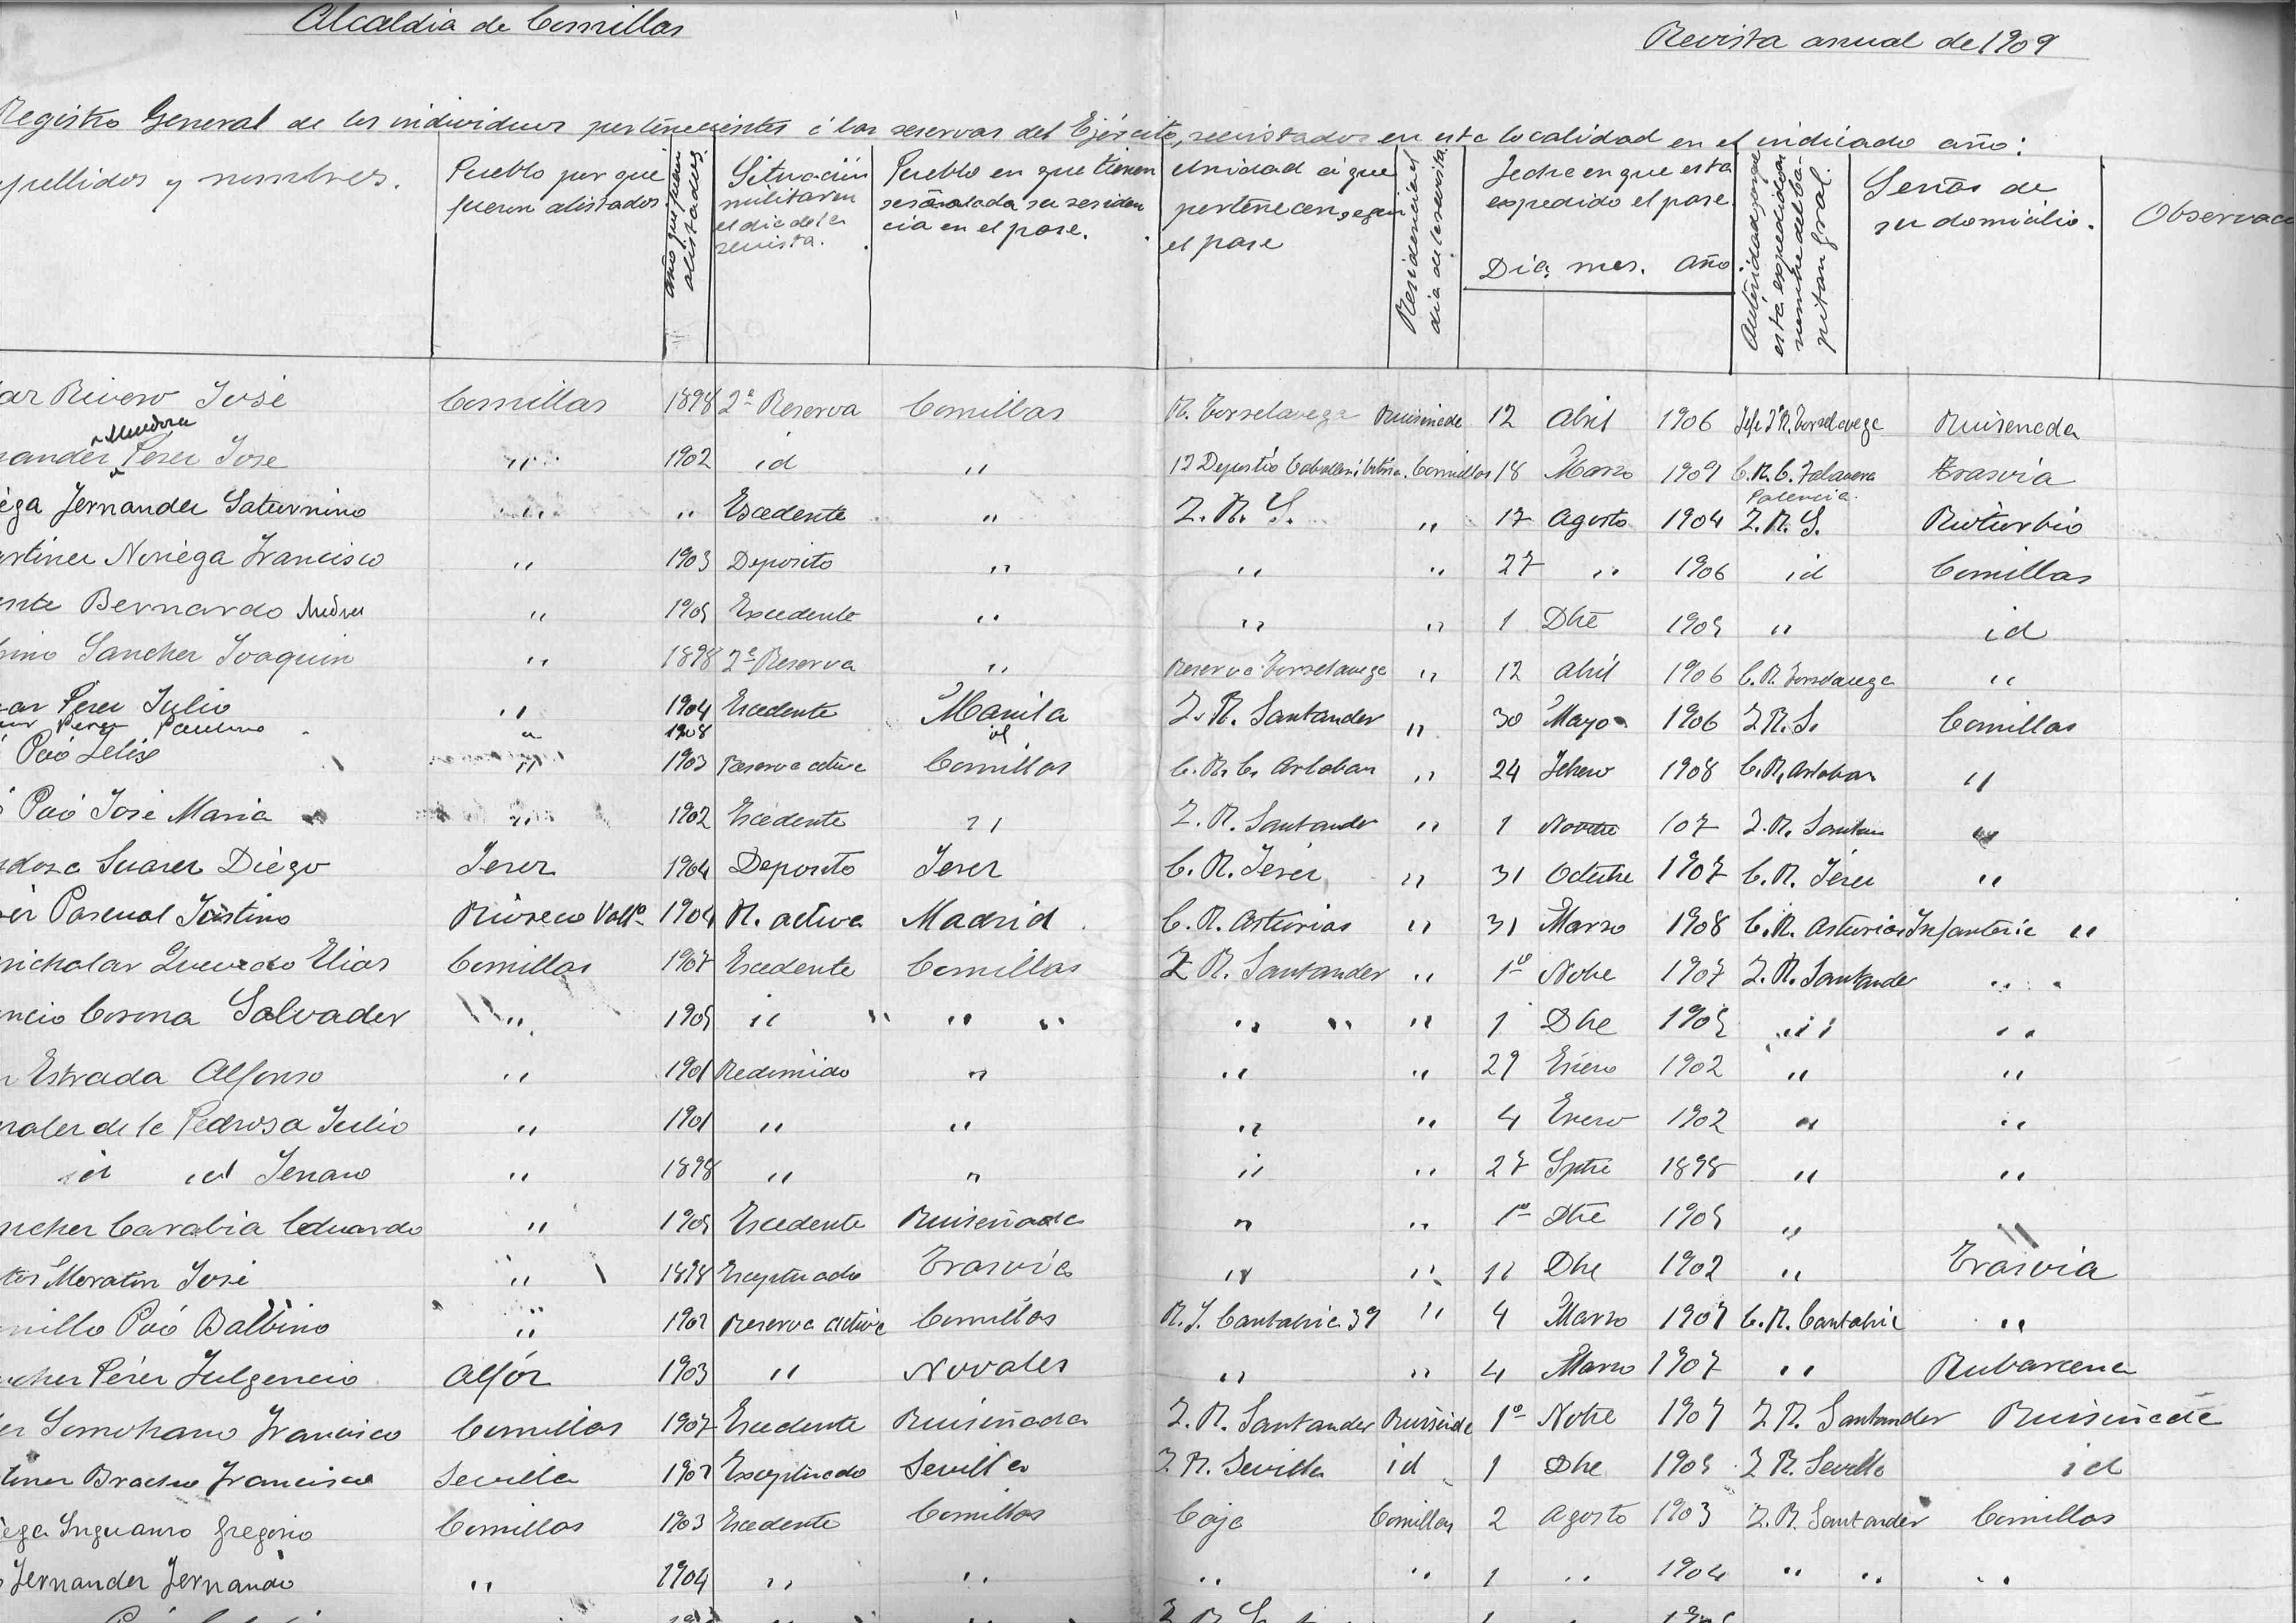 Alcaldia de Comillas
Revista anual de 1909
Registro General de los individuos pertenecientes á las reservas del Ejército, revistados en esta localidad en el indicado año:
apellidos y nombres. Pueblo por que fueron alistados año que fueron alistados. Situación militar en el dia de la revista. Pueblo en que tienen señalada su residencia en el pase. Unidad á que pertenecen segun el pase Residencia el dia de la revista. Fecha en que está expedido el pase Dia, mes. Año Autoridad porque está expedido nombre del Capitan Gral. Señas de su domicilio. Observac
ar Rivero José Comillas 1898 2ª Reserva Comillas R. Torrelavega Ruiseñada 12 Abril 1906 Jefe 2ª R. Torrelavega Ruiseñada
nander Perez Jose " 1902 id " 12 Deposito Caballeria Comillas 18 Marzo 1909 C. R. C. Talavera Palencia. Trasvia
ega Fernandez Saturnino " " Escedente " Z. R. S. " 17 Agosto 1904 Z. R. S. Rioturbio
artinez Noriega Francisco " 1903 Deposito " " " 27 " 1906 id Comillas
ente Bernardo Andres " 1905 Excedente " " " 1 Dbre 1905 " id
ino Sanchez Joaquin " 1898 2ª Reserva " Reserva Torrelavega " 12 Abril 1906 C. R. Torrelavega "
ar Perez Julio " 1904 Escedente Manila Z. R. Santander " 30 Mayo 1906 Z R. S. Comillas
Perez Paulino " 1908 id
Poó Felix " 1903 Reserva activa Comillas C. R. C. Arlaban " 24 Febero 1908 C. R. Arlaban "
Poó José Maria " 1902 Escedente " Z. R. Santander " 1 Novbre 107 Z. R. Santan "
doza Suarez Diego Jerez 1904 Deposito Jerez C. R. Jerez " 31 Octubre 1907 C. R. Jerez "
er Pascual Justino Rioseco Vallº 1904 R. activa Madrid C. R. Asturias " 31 Marzo 1908 C. R. Asturias Infanteria "
nicholar Quevedo Elias Comillas 1907 Escedente Comillas Z R. Santander " 1º Nobe 1907 Z. R. Santander "
ncio Corona Salvador " 1905 id " " " " " " 1 Dbe 1905 " "
Estrada Alfonso " 1901 Redimido " " " 29 Enero 1902 " "
nzalez de la Pedrosa Julio " 1901 " " " " 4 Enero 1902 " "
id id Jenaro " 1898 " " " " 27 Sptre 1898 " "
nchez Carabia Eduardo " 1905 Escedente Ruiseñada " " 1º Dbre 1905 " "
tos Moratin José " 1898 Exceptuado Trasvia " " 11 Dbe 1902 " Trasvia
nillo Poó Balbino " 1902 Reserva activa Comillas R. I. Cantabria 39 " 4 Marzo 1907 C. R. Cantabria "
chez Pérez Fulgencio Alfóz 1903 " Novales " " 4 Marzo 1907 " Rubarcena
er Somohano Francisco Comillas 1907 Escedente Ruiseñada Z. R. Santander Ruiseñada 1º Nobre 1907 Z R. Santander Ruiseñada
tinez Bracho Francisco Sevilla 1902 Exceptuado Sevilla Z. R. Sevilla id 1 Dbe 1905 Z R. Sevilla id
ega Inguanzo Gregorio Comillas 1903 Escedente Comillas Caja Comillas 2 Agosto 1903 Z. R. Santander Comillas
Fernandez Fernando " 1904 " " " " 1 " 1904 " " "